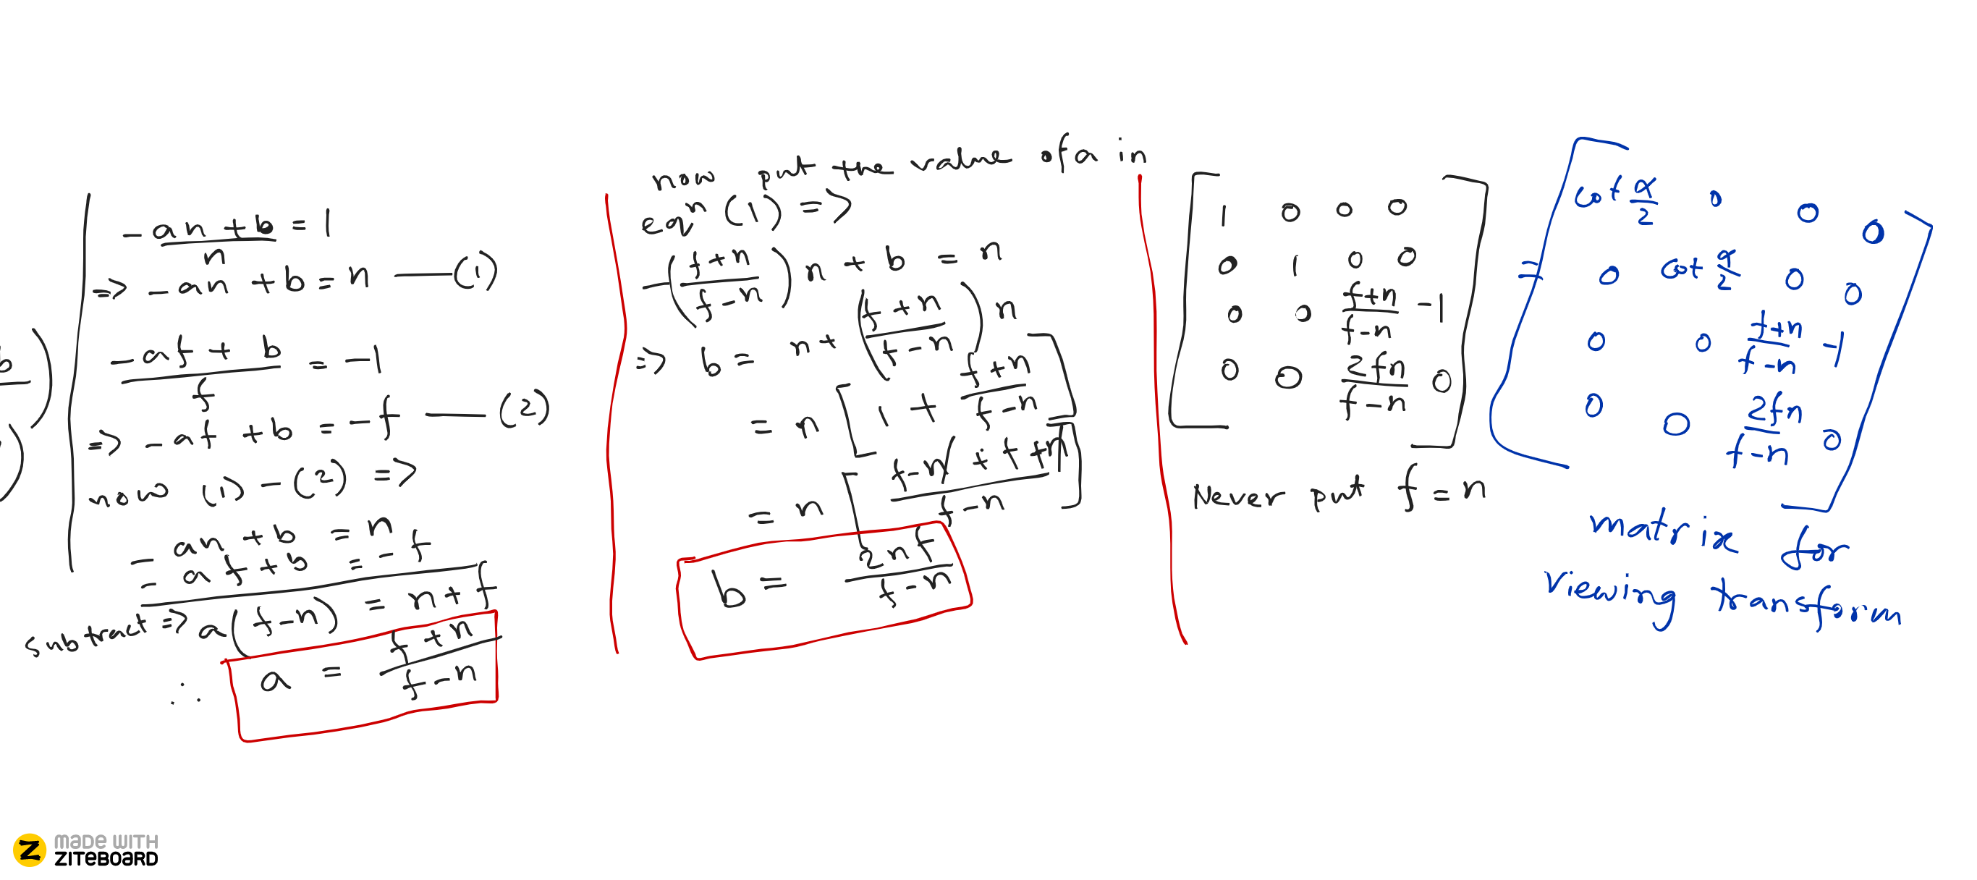 b
(-an + b)/n = 1
=> -an + b = n —— (1)
(-af + b)/f = -1
=> -af + b = -f —— (2)
now (1) - (2) =>
-an + b = n
-af + b = -f
subtract => a(f-n) = n+f
∴ a = (f+n)/(f-n)
now put the value of a in
eqn (1) =>
-((f+n)/(f-n)) n + b = n
=> b = n + ((f+n)/(f-n)) n
= n [1 + (f+n)/(f-n)]
= n [(f-n+f+n)/(f-n)]
b = 2nf/(f-n)
1 0 0 0
0 1 0 0
0 0 (f+n)/(f-n) -1
0 0 2fn/(f-n) 0
Never put f = n
= cot α/2 0 0 0
0 cot α/2 0 0
0 0 (f+n)/(f-n) -1
0 0 2fn/(f-n) 0
matrix for
viewing transform
MADE WITH
ZITEBOARD